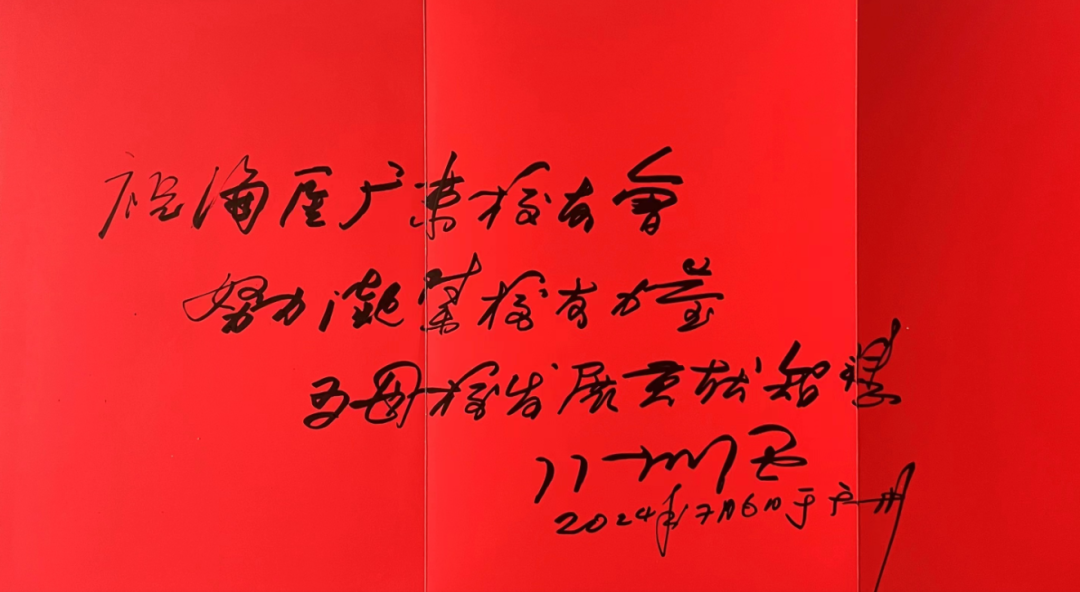 祝海医广东校友會
努力凝聚校友力量
为母校发展贡献智慧
2024年7月6日于广州